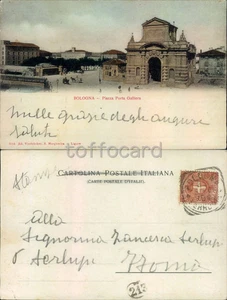 BOLOGNA - Piazza Porta Galliera
Mille grazie degli auguri
saluti
toffocard
CARTOLINA POSTALE ITALIANA
(CARTE POSTALE D'ITALIE)
Alla
Signorina Francesca Serlupi
Serlupi
Roma
213